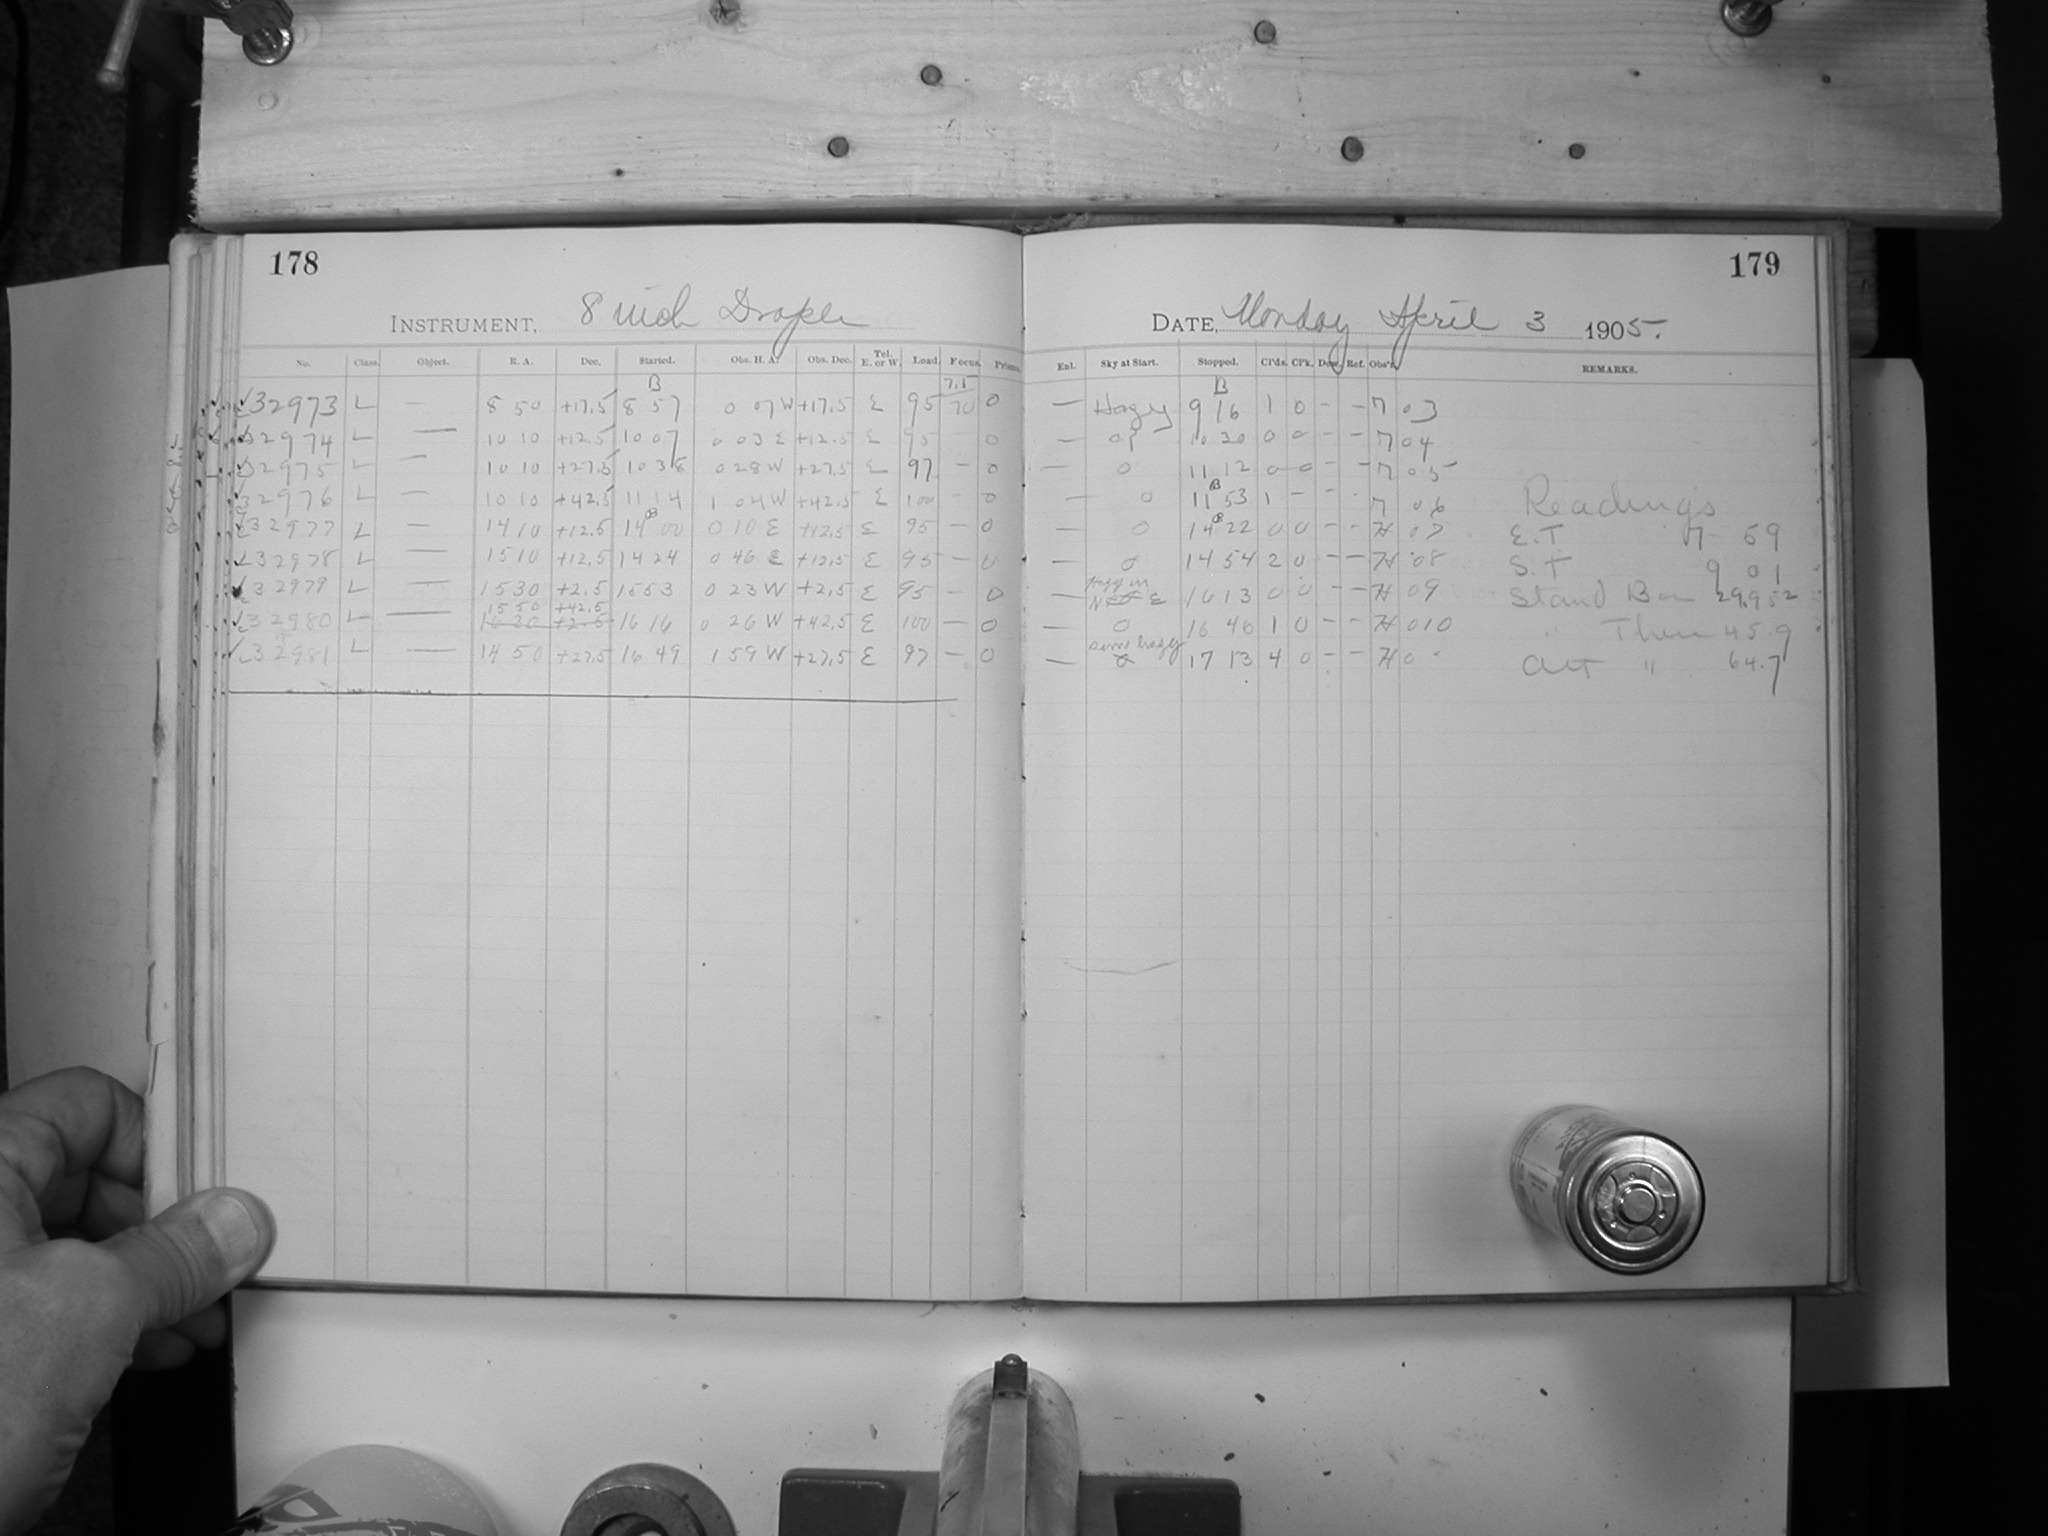 178
179
INSTRUMENT, 8 inch Draper
DATE, Monday April 3 1905.
No. Class. Object. R. A. Dec. Started. Obs. H. A. Obs. Dec. Tel. E. or W. Load. Focus. Prisms. Enl. Sky at Start. Stopped. Cl'ds. Cl'k. Dew. Ref. Obs'r. REMARKS.
B 7.5 B
32973 L — 8 50 +17.5 8 57 0 07 W +17.5 E 95 70 0 — Hazy 9 16 1 0 - - 03
32974 L — 10 10 +12.5 10 07 0 03 E +12.5 E 95 - 0 — 10 30 0 0 - - 04
32975 L — 10 10 +27.5 10 38 0 28 W +27.5 E 97 - 0 — 0 11 12 0 0 - - 05
32976 L — 10 10 +42.5 11 14 1 04 W +42.5 E 100 - 0 — 0 11 53 1 - - - 06 Readings
32977 L — 14 10 +12.5 14 00 0 10 E +12.5 E 95 - 0 — 0 14 22 0 0 - - H 07 E.T 59
32978 L — 15 10 +12.5 14 24 0 46 E +12.5 E 95 - 0 — 0 14 54 2 0 - - H 08 S.T 9 01
Hazy in
32979 L — 15 30 +2.5 15 53 0 23 W +2.5 E 95 - 0 — E 16 13 0 0 - - H 09 Stand Bar 29.952
15 50 +42.5
32980 L — 16 30 +2.5 16 16 0 26 W +42.5 E 100 - 0 — 0 16 46 1 0 - - H 010 " Ther 45.9
some hazy
32981 L — 14 50 +27.5 16 49 1 59 W +27.5 E 97 - 0 — 17 13 4 0 - - H 0 Att " 64.7